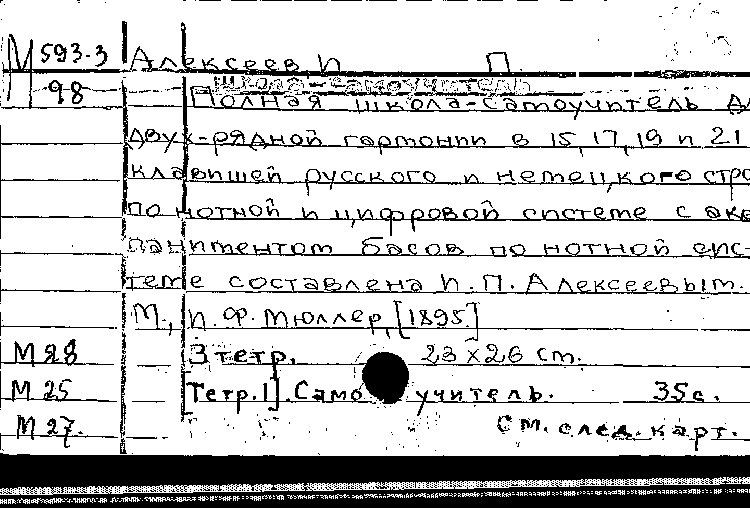 М 593-3 Алексеев И П.
98 Школа-самоучитель
Полная школа-самоучитель
двух-рядной гармонии в 15, 17, 19 и 21
клавишей русского и немецкого стро
по нотной и цифровой системе с акк
панитентом басов по нотной сис-
теме составлена И. П. Алексеевым.
М., И. Ф. Мюллер, [1895]
М 28 3 тетр. 23 x 26 cm.
М 25 [Тетр. I]. Самоучитель. 35 с.
М 27. См. след. карт.